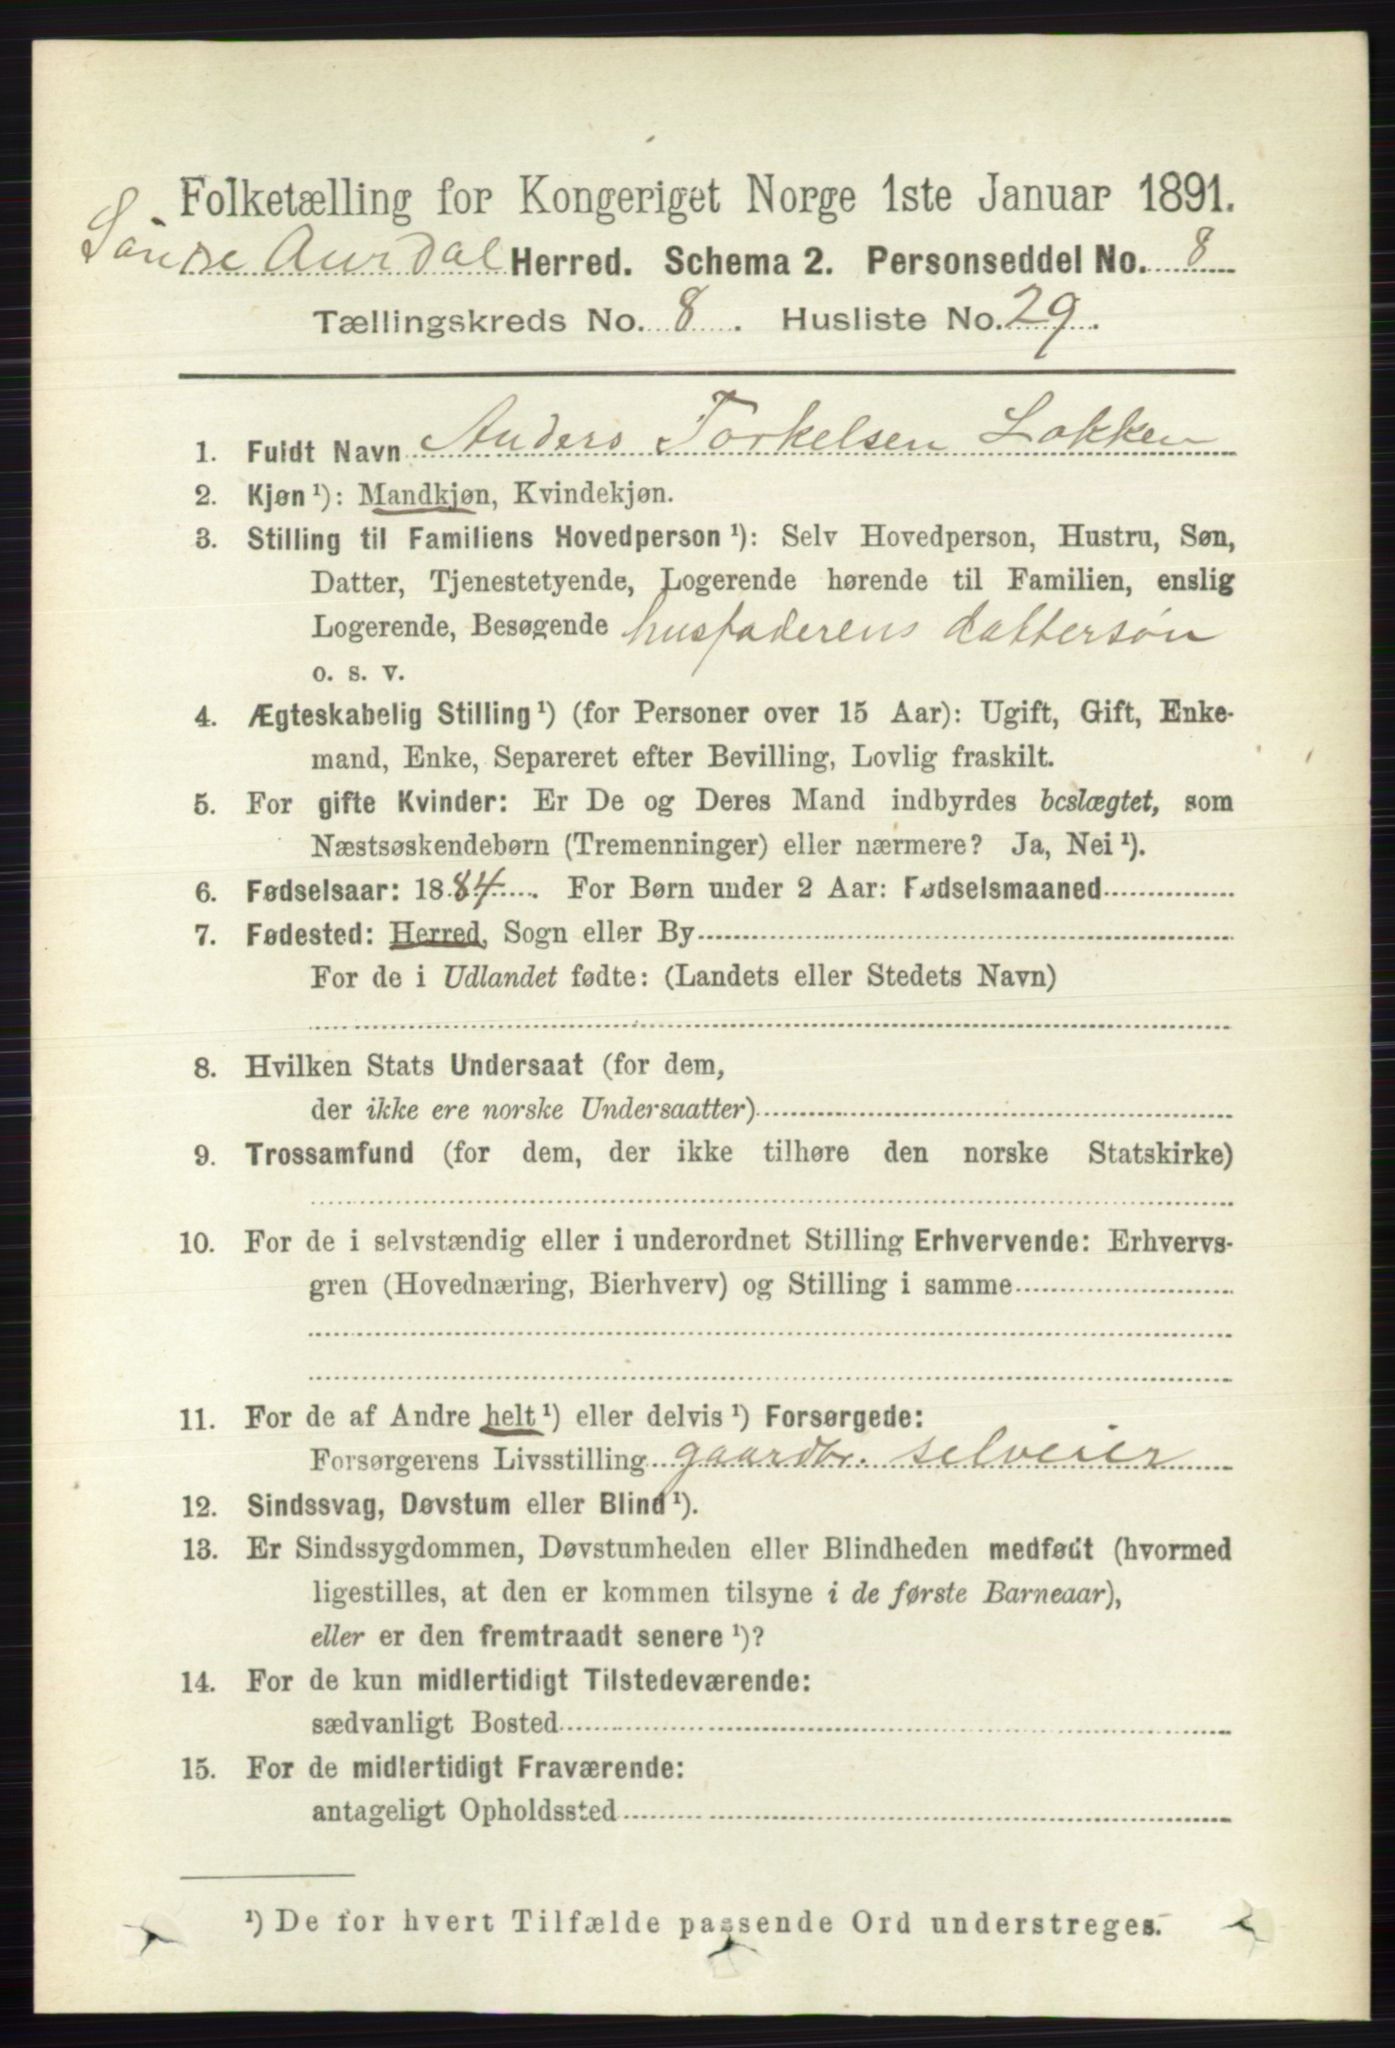 Folketælling for Kongeriget Norge 1ste Januar 1891.
Söndre Aurdal Herred. Schema 2. Personseddel No. 8
Tællingskreds No. 8. Husliste No. 29.
1. Fuldt Navn Anders Torkelsen Lokken
2. Kjøn ¹): Mandkjøn, Kvindekjøn.
3. Stilling til Familiens Hovedperson ¹): Selv Hovedperson, Hustru, Søn,
Datter, Tjenestetyende, Logerende hørende til Familien, enslig
Logerende, Besøgende husfaderens dattersön
o. s. v.
4. Ægteskabelig Stilling ¹) (for Personer over 15 Aar): Ugift, Gift, Enke-
mand, Enke, Separeret efter Bevilling, Lovlig fraskilt.
5. For gifte Kvinder: Er De og Deres Mand indbyrdes beslægtet, som
Næstsøskendebørn (Tremenninger) eller nærmere? Ja, Nei ¹).
6. Fødselsaar: 1884. For Børn under 2 Aar: Fødselsmaaned
7. Fødested: Herred, Sogn eller By
For de i Udlandet fødte: (Landets eller Stedets Navn)
8. Hvilken Stats Undersaat (for dem,
der ikke ere norske Undersaatter)
9. Trossamfund (for dem, der ikke tilhøre den norske Statskirke)
10. For de i selvstændig eller i underordnet Stilling Erhvervende: Erhvervs-
gren (Hovednæring, Bierhverv) og Stilling i samme
11. For de af Andre helt ¹) eller delvis ¹) Forsørgede:
Forsørgerens Livsstilling gaardbr. selveier
12. Sindssvag, Døvstum eller Blind ¹).
13. Er Sindssygdommen, Døvstumheden eller Blindheden medfødt (hvormed
ligestilles, at den er kommen tilsyne i de første Barneaar),
eller er den fremtraadt senere ¹)?
14. For de kun midlertidigt Tilstedeværende:
sædvanligt Bosted
15. For de midlertidigt Fraværende:
antageligt Opholdssted
¹) De for hvert Tilfælde passende Ord understreges.